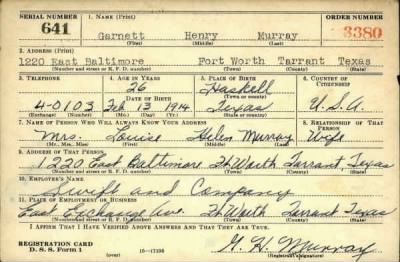 SERIAL NUMBER 1. NAME (Print) ORDER NUMBER
641 Garnett Henry Murray 3380
(First) (Middle) (Last)
2. ADDRESS (Print)
1220 East Baltimore Fort Worth Tarrant Texas
(Number and street or R. F. D. number) (Town) (County) (State)
3. TELEPHONE 4. AGE IN YEARS 5. PLACE OF BIRTH 6. COUNTRY OF CITIZENSHIP
26 Haskell
DATE OF BIRTH (Town or county)
4-0103 Feb 13 1914 Texas U.S.A.
(Exchange) (Number) (Mo.) (Day) (Yr.) (State or country)
7. NAME OF PERSON WHO WILL ALWAYS KNOW YOUR ADDRESS 8. RELATIONSHIP OF THAT PERSON
Mrs. Louise Helen Murray Wife
(Mr., Mrs., Miss) (First) (Middle) (Last)
9. ADDRESS OF THAT PERSON
1220 East Baltimore Ft Worth Tarrant, Texas
(Number and street or R. F. D. number) (Town) (County) (State)
10. EMPLOYER'S NAME
Swift and Company
11. PLACE OF EMPLOYMENT OR BUSINESS
East Exchange Ave. Ft Worth Tarrant Texas
(Number and street or R. F. D. number) (Town) (County) (State)
I AFFIRM THAT I HAVE VERIFIED ABOVE ANSWERS AND THAT THEY ARE TRUE.
REGISTRATION CARD
D. S. S. Form 1 (over) G. H. Murray
(Registrant's signature)